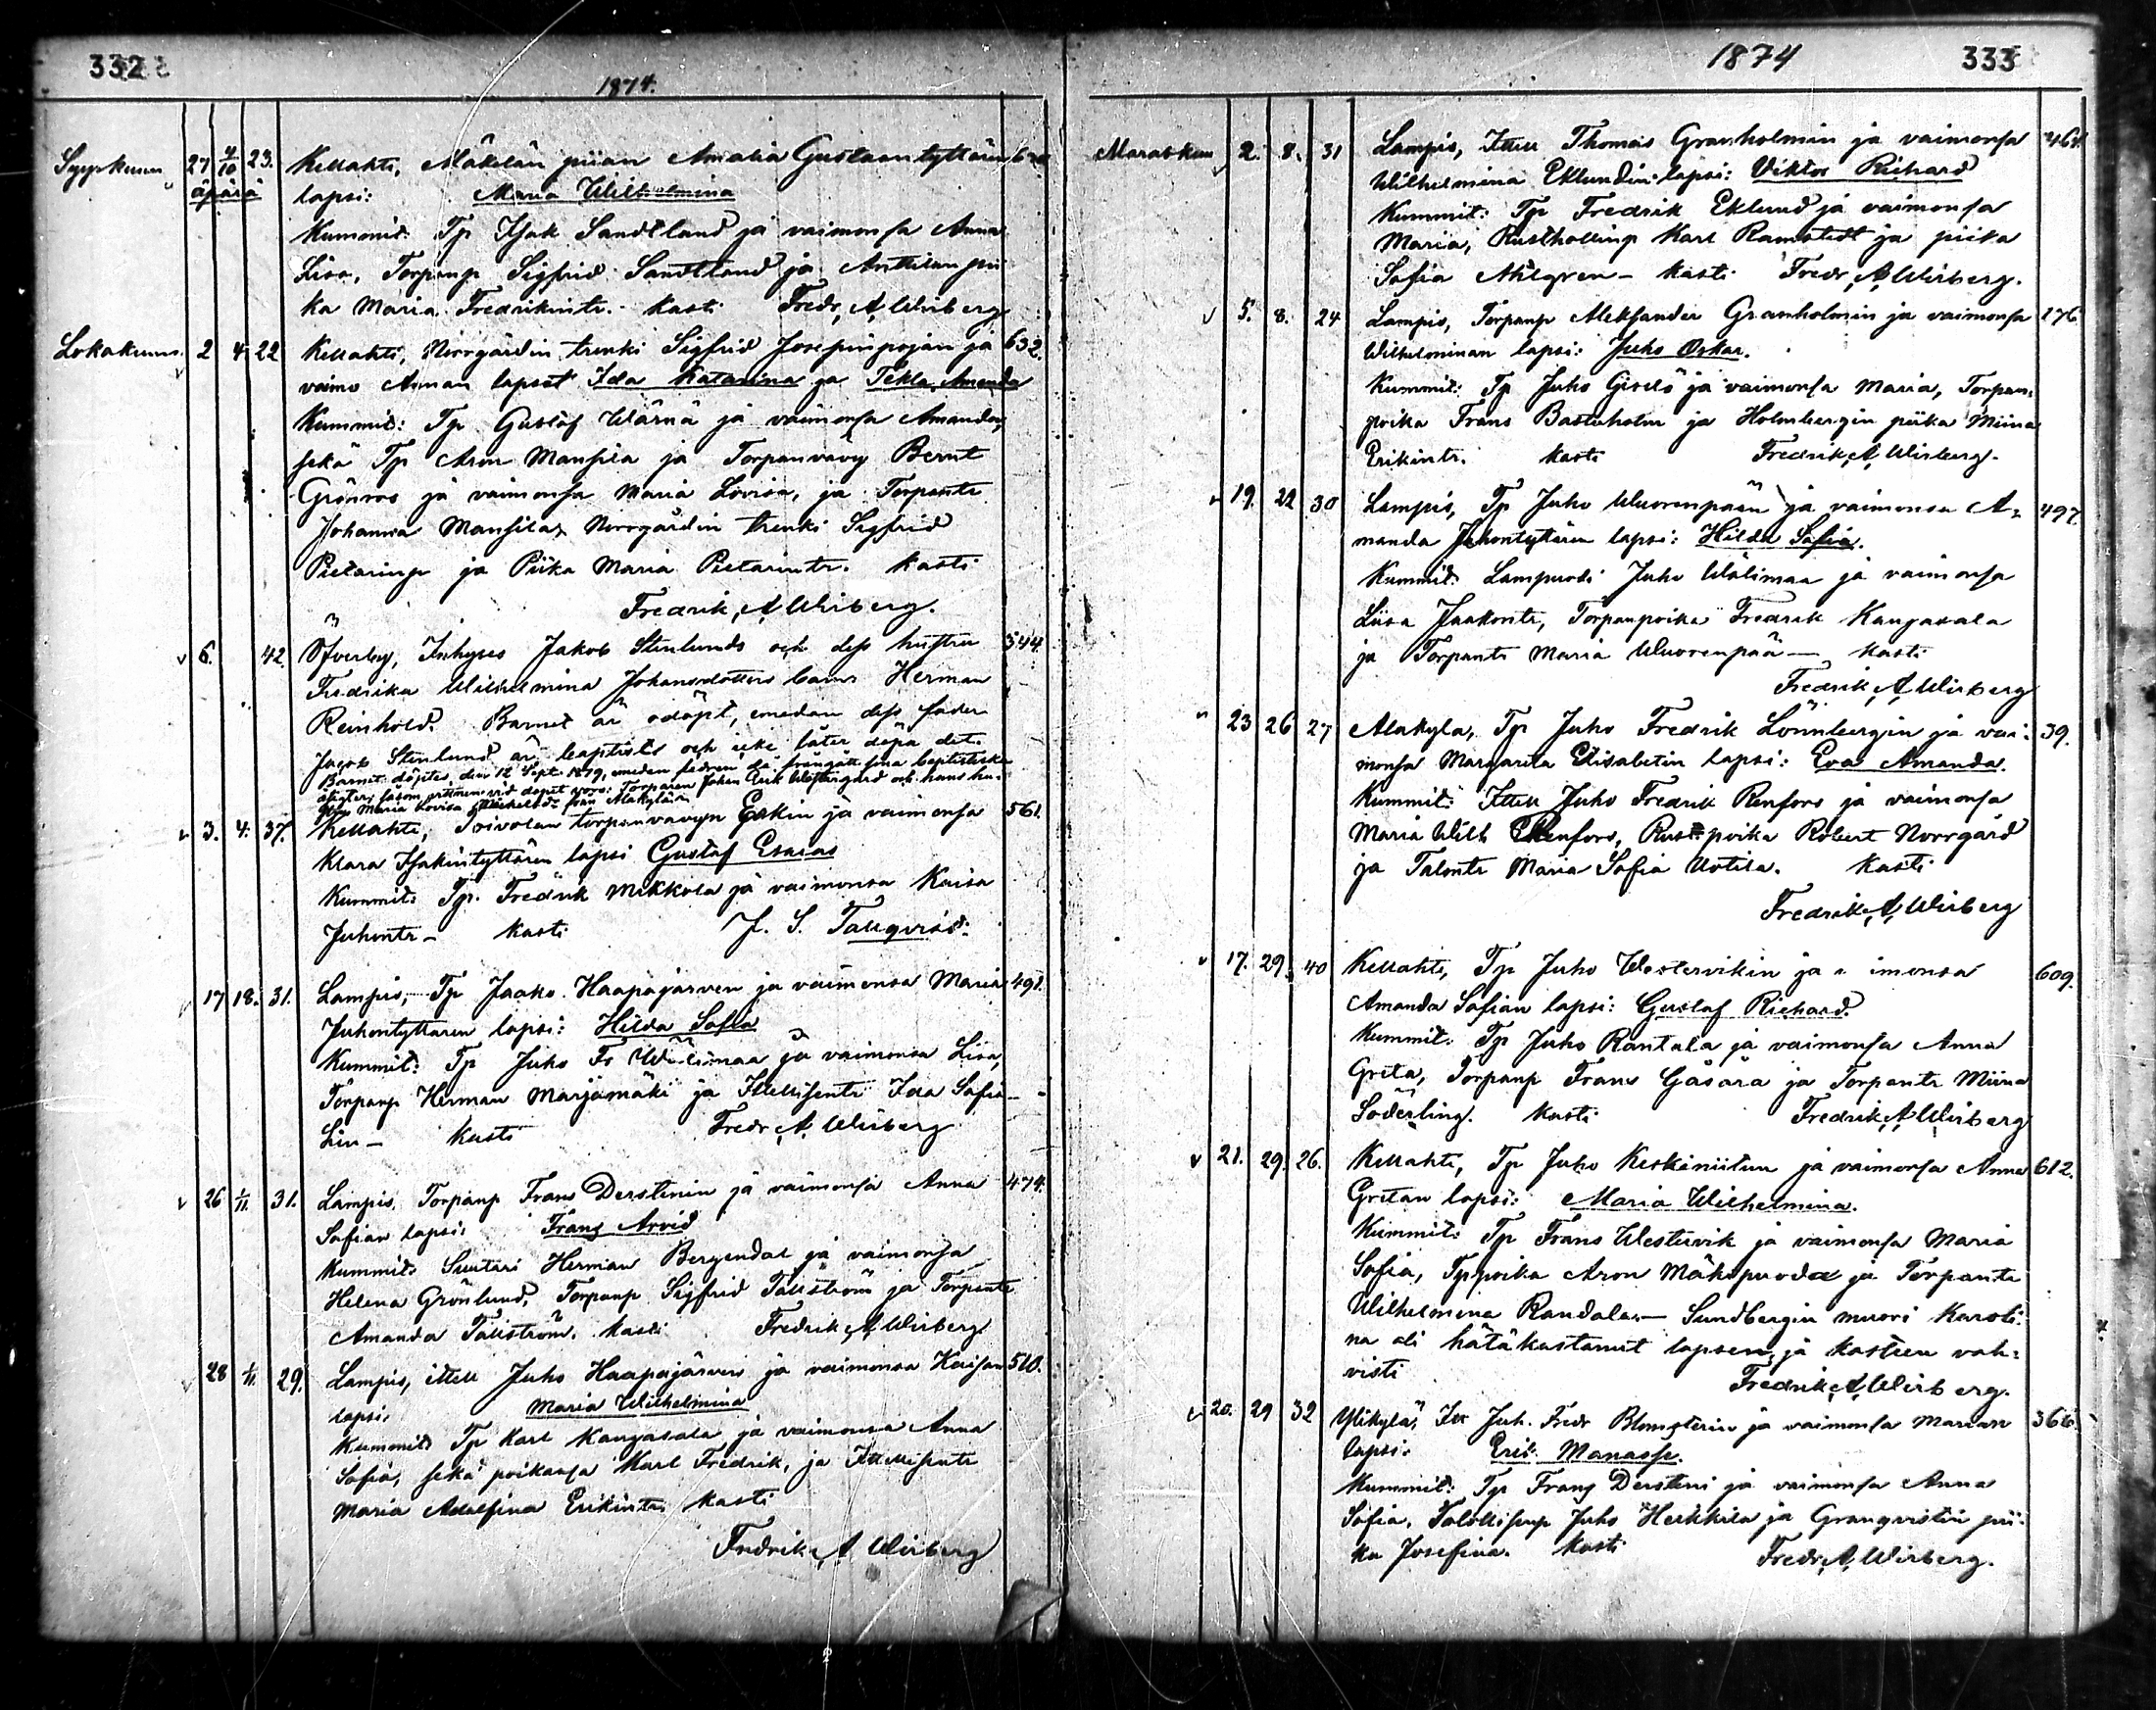 332
1874.
Syyskuun 27 4/10 23. Kellahti, Mäkelän piian Amalia Gustaantyttären
äpärä lapsi: Maria Wilhelmina
Kummit: Tp Isak Sandtland ja vaimonsa Anna
Lisa, Torpanp Sigfrid Sandtland ja Anttilan pii
ka Maria Fredrikintr. kasti Fredr, A, Wirberg
Lokakuun 2 4 22 Kellahti, Norrgårdin trenki Sigfrid Josepinpojan ja 632.
vaimo Annan lapset Ida Katarina ja Tekla Amanda
Kummit: Tp Gustaf Wärnä ja vaimonsa Amanda,
sekä Tp Aron Mansila ja Torpanvävy Bernt
Grönroos ja vaimonsa Maria Lovisa, ja Torpantr
Johanna Mansila, Norrgårdin trenki Sigfrid
Pietarinp ja Piika Maria Pietarintr. kasti
Fredrik, A, Wirberg.
6. 42 Öfverby, Inhyses Jakob Stenlunds och dess hustru 544.
Fredrika Wilhelmina Johansdotters barn Herman
Reinhold. Barnet är odöpt, emedan dess fader
Jacob Stenlund är baptist och icke låter döpa det.
Barnet döptes den 12 Sept. 1879, emedan fadren då frångått sina baptistiska
åsigter; såsom vittnen vid dopet voro: Torparen Johan Erik Westergård och hans hu-
stru Maria Lovisa Michelsdr från Alakylä.
3. 4. 37. Kellahti, Toivolan torpanvävyn Eskin ja vaimonsa 561.
Klara Isakintyttären lapsi Gustaf Esaias
Kummit: Tp. Fredrik Mikkola ja vaimonsa Kaisa
Juhontr - kasti J. S. Tallqvist.
17 18. 31. Lampis, Tp Jaako Haapajärven ja vaimonsa Maria 491.
Juhontyttären lapsi: Hilda Sofia
Kummit: Tp Juho Fr Wälimaa ja vaimonsa Lisa,
Torpanp Herman Marjamäki ja Itsellisentr Ida Sofia
Lin - kasti Fredr, A, Wirberg
26 1/11. 31. Lampis, Torpanp Frans Derstenin ja vaimonsa Anna 474.
Sofian lapsi: Frans Arvid
Kummit: Suutari Herman Bergendal ja vaimonsa
Helena Grönlund, Torpanp Sigfrid Tallström ja Torpantr
Amanda Tallström. kasti Fredrik, A, Wirberg
28 1/11. 29. Lampis, itsell Juho Haapajärven ja vaimonsa Kaisan 510.
lapsi: Maria Wilhelmina
Kummit: Tp Karl Kangasala ja vaimonsa Anna
Sofia, sekä poikansa Karl Fredrik, ja Itsellisentr
Maria Adolfina Erikintr. kasti
Fredrik, A, Wirberg
1874 333
Maraskuu 2. 8. 31 Lampis, Itsell Thomas Granholmin ja vaimonsa 464.
Wilhelmina Eklundin lapsi: Viktor Richard
Kummit: Tp Fredrik Eklund ja vaimonsa
Maria, Rusthollinp Karl Ramstedt ja piika
Sofia Ahlgren - kasti Fredr, A, Wirberg.
5. 8. 24 Lampis, Torpanp Aleksander Granholmin ja vaimonsa 176
Wilhelminan lapsi: Juho Oskar.
Kummit: Tp Juho Gislö ja vaimonsa Maria, Torpan-
poika Frans Bastuholm ja Holmbergin piika Miina
Erikintr. kasti Fredrik, A, Wirberg.
19. 22 30 Lampis, Tp Juho Wuorenpään ja vaimonsa A- 497.
manda Juhontyttären lapsi: Hilda Sofia.
Kummit: Lampuodi Juho Wälimaa ja vaimonsa
Liisa Jaakontr, Torpanpoika Fredrik Kangasala
ja Torpantr Maria Wuorenpää - kasti
Fredrik, A, Wirberg
23 26 27 Alakyla, Tp Juho Fredrik Lönnbergin ja vai- 39.
monsa Margareta Elisabetin lapsi: Eva Amanda.
Kummit: Itsell Juho Fredrik Renfors ja vaimonsa
Maria Wilh Renfors, Rustpoika Robert Norrgård
ja Talontr Maria Sofia Uotila. kasti
Fredrik, A, Wirberg
17. 29. 40 Kellahti, Tp Juho Westervikin ja v imonsa 609.
Amanda Sofian lapsi: Gustaf Richard.
Kummit: Tp Juho Rantala ja vaimonsa Anna
Greta, Torpanp Frans Gåsara ja Torpantr Miina
Söderling. kasti Fredrik, A, Wirberg
21. 29. 26. Kellahti, Tp Juho Keskiniitun ja vaimonsa Anna 612.
Gretan lapsi: Maria Wilhelmina.
Kummit: Tp Frans Westervik ja vaimonsa Maria
Sofia, Tppoika Aron Mäkipuoda ja Torpantr
Wilhelmina Randala. - Sundbergin muori Karoli-
na oli hätäkastanut lapsen, ja kasteen vah-
visti Fredrik, A, Wirberg.
20. 29 32 Ylikylä, Its Juh. Fredr Blomsterin ja vaimonsa Marian 366.
lapsi: Erik Manasse.
Kummit: Tp Frans Dersteni ja vaimonsa Anna
Sofia, Talollisenp Juho Heikkila ja Granqvistin pii-
ka Josefina. kasti Fredr, A, Wirberg.